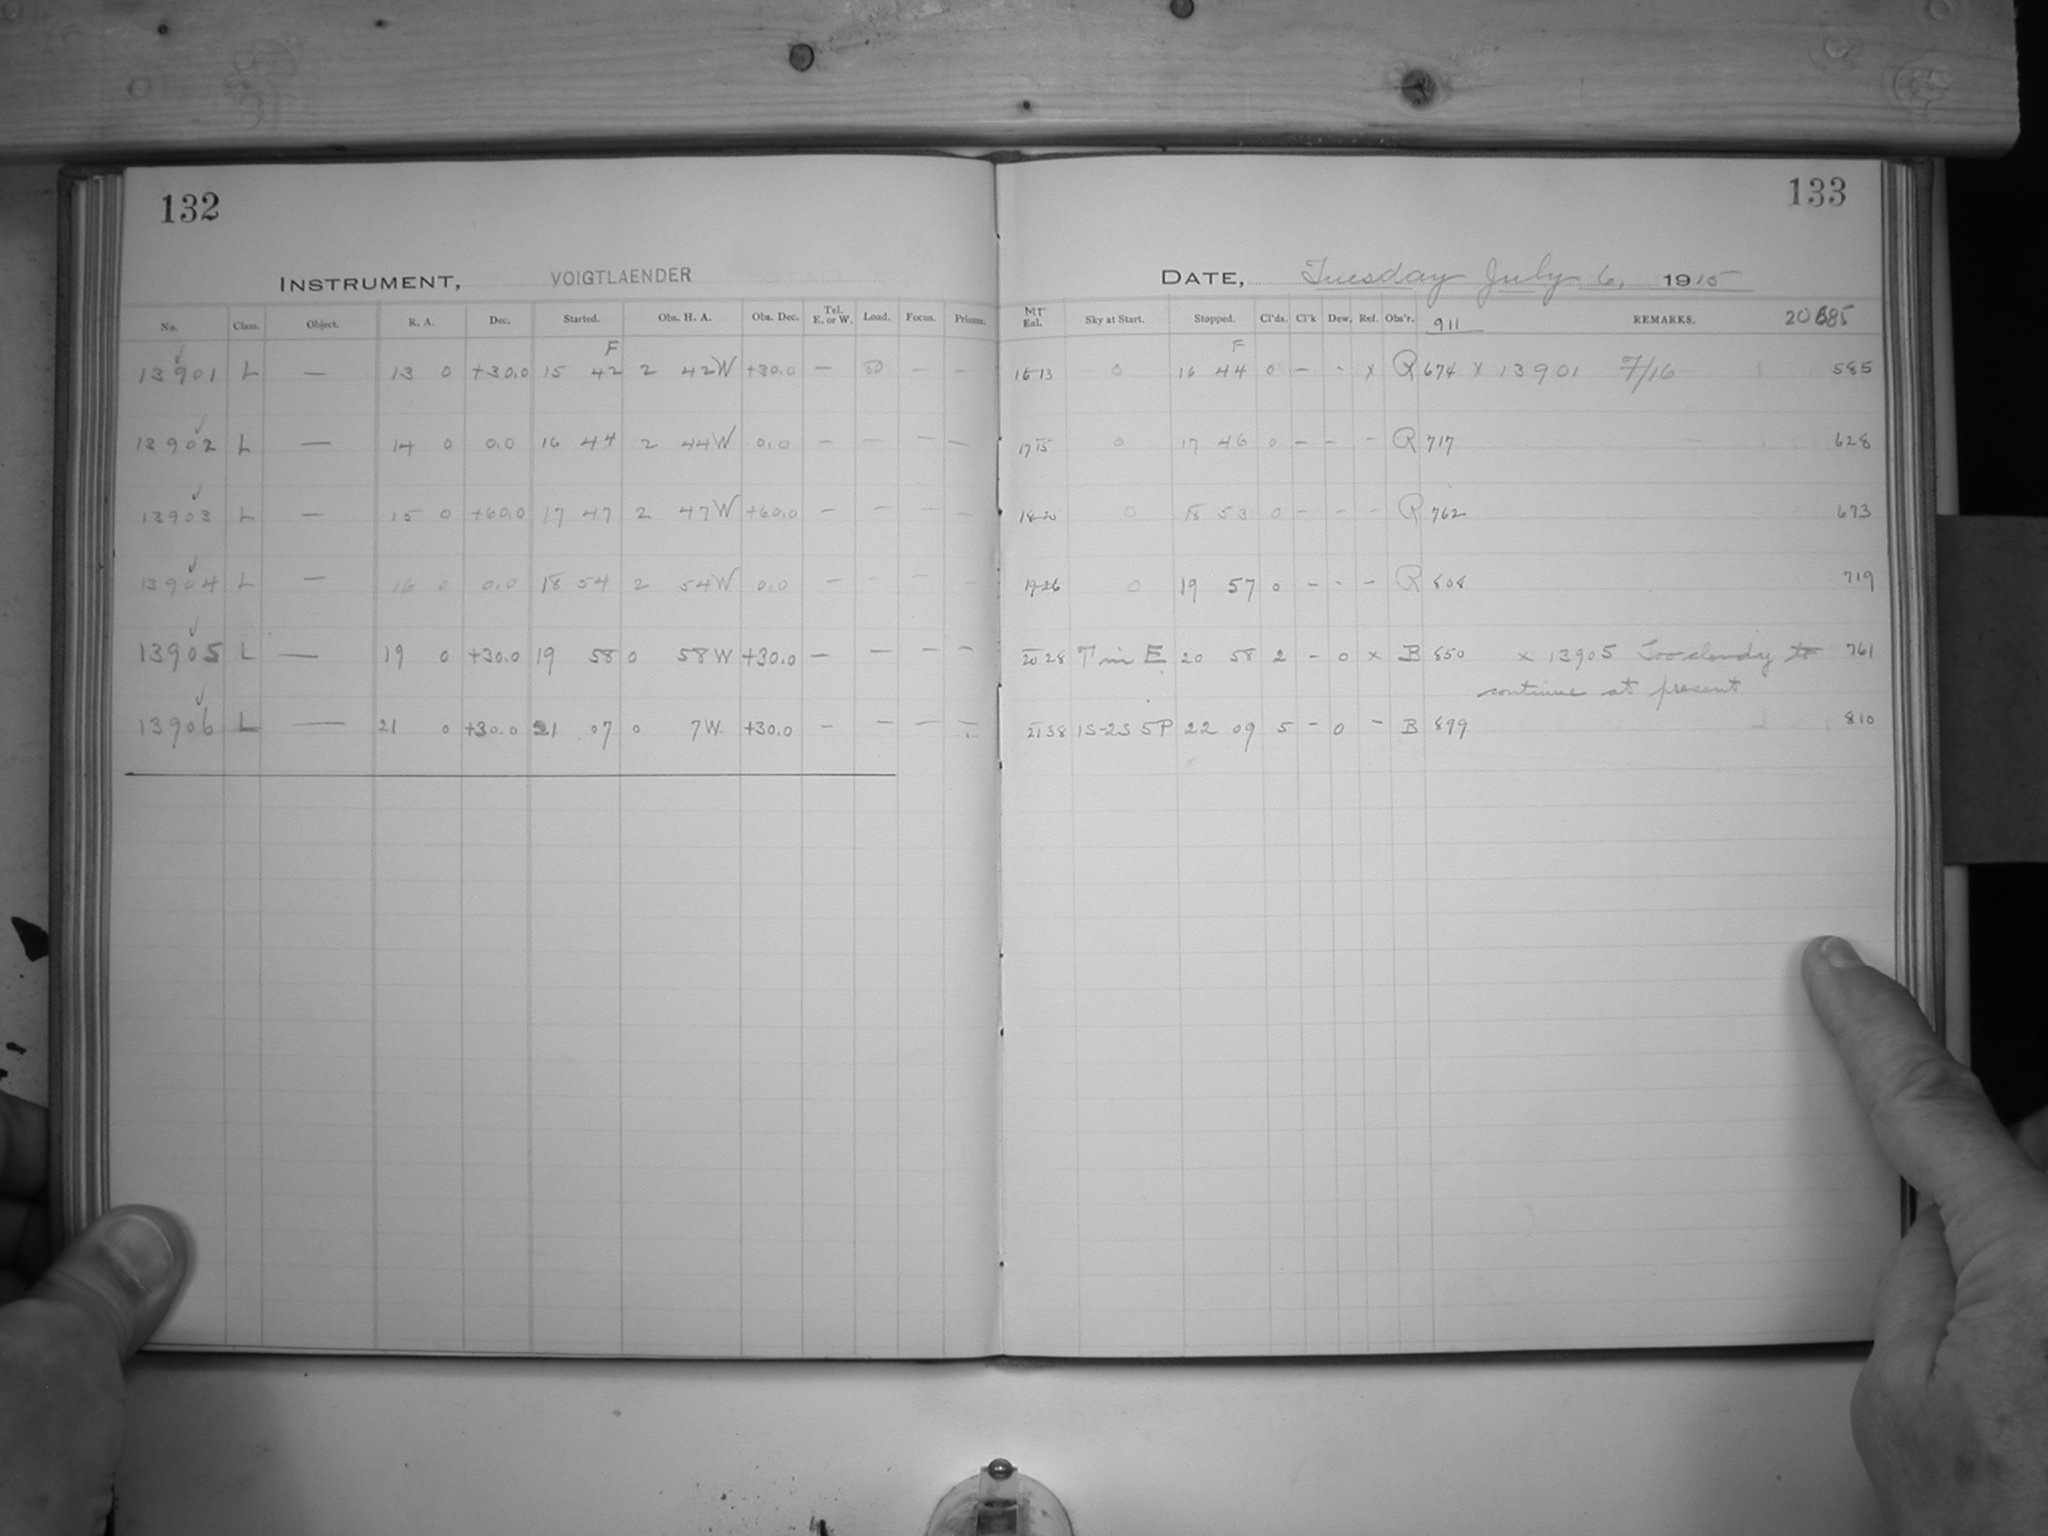 132
INSTRUMENT, VOIGTLAENDER
No. Class. Object. R. A. Dec. Started. Obs. H. A. Obs. Dec. Tel. E. or W. Load. Focus. Prisms.
F
13901 L — 13 0 +30.0 15 42 2 42W +30.0 — — —
13902 L — 14 0 0.0 16 44 2 44W 0.0 — — — —
13903 L — 15 0 +60.0 17 47 2 47W +60.0 — — — —
13904 L — 16 0 0.0 18 54 2 54W 0.0 — — — —
13905 L — 19 0 +30.0 19 58 0 58W +30.0 — — — —
13906 L — 21 0 +30.0 21 07 0 7W. +30.0 — — — —
133
DATE, Tuesday July 6, 1915
MT Eql. Sky at Start. Stopped. Cl'ds. Cl'k Dew. Ref. Obs'r. 911 REMARKS. 20685
F
16 13 0 16 44 0 — - x R 674 x 13901 7/16 585
17 15 0 17 46 0 — — — R 717 628
18 20 0 18 53 0 — — — R 762 673
19 26 0 19 57 0 — - — R 808 719
20 28 T in E 20 58 2 - 0 x B 850 x 13905 Too cloudy to 761
continue at present
21 38 1S-2S 5P 22 09 5 - 0 - B 899 810